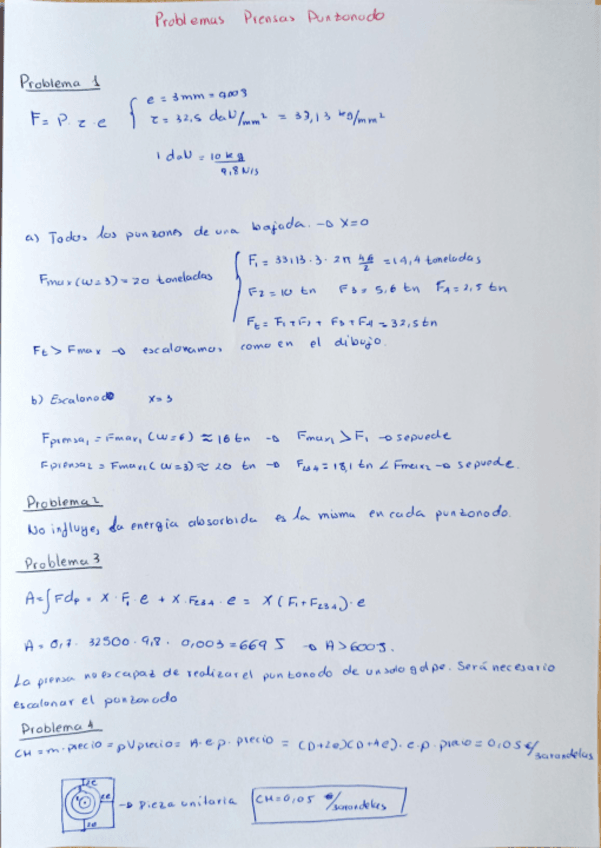 Problemas Prensas Punzonado
Problema 1
F = P · τ · e { e = 3 mm = 0,003
τ = 32,5 daN/mm² = 33,13 kg/mm²
1 daN = 10 kg / 9,8 N/s
a) Todos los punzones de una bajada. → X=0
Fmax (W=3) = 20 toneladas { F₁ = 33,13 · 3 · 2π 46/2 = 14,4 toneladas
F2 = 10 tn F3 = 5,6 tn F4 = 2,5 tn
Ft = F1 + F2 + F3 + F4 = 32,5 tn
Ft > Fmax → escalonamos como en el dibujo.
b) Escalonado X=3
Fprensa₁ = Fmax₁ (W=6) ≈ 16 tn → Fmax₁ > F₁ → se puede
Fprensa2 = Fmax2 (W=3) ≈ 20 tn → F234 = 18,1 tn < Fmax2 → se puede.
Problema 2
No influye, la energía absorbida es la misma en cada punzonado.
Problema 3
A = ∫ Fdp = X · F₁ · e + X · F234 · e = X (F1 + F234) · e
A = 0,7 · 32500 · 9,8 · 0,003 = 669 J → A > 600J.
La prensa no es capaz de realizar el punzonado de un solo golpe. Será necesario
escalonar el punzonado
Problema 4
CM = m · precio = ρ V precio = A · e · ρ · precio = (D+2e)(D+4e) · e · ρ · precio = 0,05 €/arandelas
2e
2e
2e
→ Pieza unitaria CM = 0,05 €/arandelas